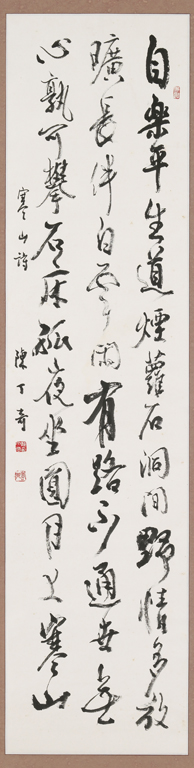 自樂平生道煙蘿石洞間野情多放
曠長伴白雲閑有路不通世無
心孰可攀石床孤夜坐圓月上寒山
寒山詩
陳丁奇